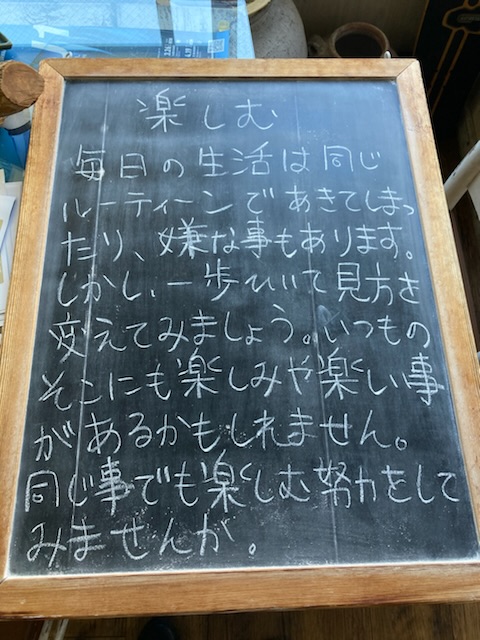 楽しむ
毎日の生活は同じ
ルーティーンであきてしまっ
たり、嫌な事もあります。
しかし、一歩ひいて見方を
変えてみましょう。いつもの
そこにも楽しみや楽しい事
があるかもしれません。
同じ事でも楽しむ努力をして
みませんか。